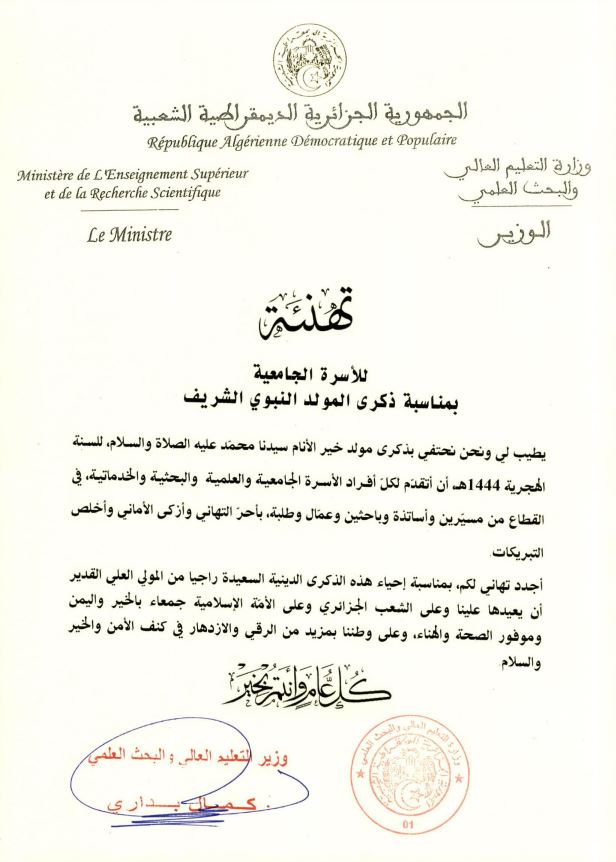 الجمهورية الجزائرية الديمقراطية الشعبية
République Algérienne Démocratique et Populaire
وزارة التعليم العالي
والبحث العلمي
الوزير
Ministère de L'Enseignement Supérieur
et de la Recherche Scientifique
Le Ministre
تهنئة
للأسرة الجامعية
بمناسبة ذكرى المولد النبوي الشريف
يطيب لي ونحن نحتفي بذكرى مولد خير الأنام سيدنا محمّد عليه الصلاة والسلام، للسنة
الهجرية 1444هـ، أن أتقدّم لكلّ أفراد الأسرة الجامعية والعلمية والبحثية والخدماتية، في
القطاع من مسيّرين وأساتذة وباحثين وعمّال وطلبة، بأحرّ التهاني وأزكى الأماني وأخلص
التبريكات.
أجدد تهاني لكم، بمناسبة إحياء هذه الذكرى الدينية السعيدة راجيا من المولي العلي القدير
أن يعيدها علينا وعلى الشعب الجزائري وعلى الأمّة الإسلامية جمعاء بالخير واليمن
وموفور الصحة والهناء، وعلى وطننا بمزيد من الرقي والازدهار في كنف الأمن والخير
والسلام
كُلُّ عَامٍ وَأَنْتُمْ بِخَيْرٍ
وزير التعليم العالي والبحث العلمي
كمال بداري
وزارة التعليم العالي والبحث العلمي
01